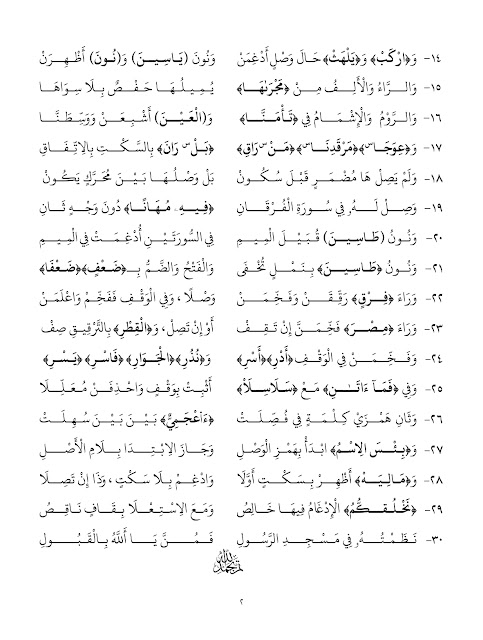 ١٤- وَ﴿ارْكَبْ﴾ وَ﴿يَلْهَثْ﴾ حَالَ وَصْلٍ أَدْغِمَنْ وَنُونَ (يَاسِينَ) وَ(نُونَ) أَظْهِرَنْ
١٥- وَالرَّاءُ وَالْأَلِفُ مِنْ ﴿مَجْرَىٰهَا﴾ يُمِيلُهَا حَفْصٌ بِلَا سِوَاهَا
١٦- وَالرَّوْمُ وَالْإِشْمَامُ فِي ﴿تَأْمَنَّا﴾ وَ(الْعَيْنَ) أَشْبِعَنْ وَوَسِّطَنَّا
١٧- وَ﴿عِوَجَا ۜ﴾ ﴿مَرْقَدِنَا ۜ﴾ ﴿مَنْ ۜ رَاقٍ﴾ ﴿بَلْ ۜ رَانَ﴾ بِالسَّكْتِ بِالِاتِّفَاقِ
١٨- وَلَمْ يَصِلْ هَا مُضْمَرٍ قَبْلَ سُكُونْ بَلْ وَصْلُهَا بَيْنَ مُحَرَّكٍ يَكُونْ
١٩- وَصِلْ لَهُ فِي سُورَةِ الْفُرْقَانِ ﴿فِيهِۦ مُهَانًا﴾ دُونَ وَجْهٍ ثَانِ
٢٠- وَنُونُ (طَاسِينَ) قُبَيْلَ الْمِيمِ فِي السُّورَتَيْنِ أُدْغِمَتْ فِي الْمِيمِ
٢١- وَنُونُ ﴿طَاسِينَ﴾ بِنَمْلٍ تُخْفَى وَالْفَتْحُ وَالضَّمُّ بِـ﴿ضَعْفٍ﴾ ﴿ضَعْفَا﴾
٢٢- وَرَاءَ ﴿فِرْقٍ﴾ رَقِّقَنْ وَفَخِّمَنْ وَصْلًا، وَفِي الْوَقْفِ فَفَخِّمْ وَاعْلَمَنْ
٢٣- وَرَاءَ ﴿مِصْرَ﴾ فَخِّمَنَّ إِنْ تَقِفْ أَوْ إِنْ تَصِلْ، وَ﴿الْقِطْرِ﴾ بِالتَّرْقِيقِ صِفْ
٢٤- وَفَخِّمَنْ فِي الْوَقْفِ ﴿أَدْرِ﴾ ﴿أَسْرِ﴾ وَ﴿نُذُرِ﴾ ﴿الْجَوَارِ﴾ ﴿فَاسْرِ﴾ ﴿يَسْرِ﴾
٢٥- وَفِي ﴿فَمَا ءَاتَىٰنِ﴾ مَعْ ﴿سَلَاسِلَا﴾ أَثْبِتْ بِوَقْفٍ وَاحْذِفَنْ مُعَلِّلَا
٢٦- وَثَانِ هَمْزَيْ كِلْمَةٍ فِي فُصِّلَتْ ﴿ءَا۬عْجَمِيٌّ﴾ بَيْنَ بَيْنَ سُهِّلَتْ
٢٧- وَ﴿بِئْسَ الِاسْمُ﴾ ابْدَأْ بِهَمْزِ الْوَصْلِ وَجَازَ الِابْتِدَا بِلَامِ الْأَصْلِ
٢٨- وَ﴿مَالِيَهْ﴾ أَظْهِرْ بِسَكْتٍ أَوَّلَا وَادْغِمْ بِلَا سَكْتٍ، وَذَا إِنْ تَصِلَا
٢٩- ﴿نَخْلُقكُّمْ﴾ الْإِدْغَامُ فِيهَا خَالِصُ وَمَعَ الِاسْتِعْلَا بِقَافٍ نَاقِصُ
٣٠- نَظَمْتُهُ فِي مَسْجِدِ الرَّسُولِ فَمُنَّ يَا أَللَّهُ بِالْقَبُولِ
٢